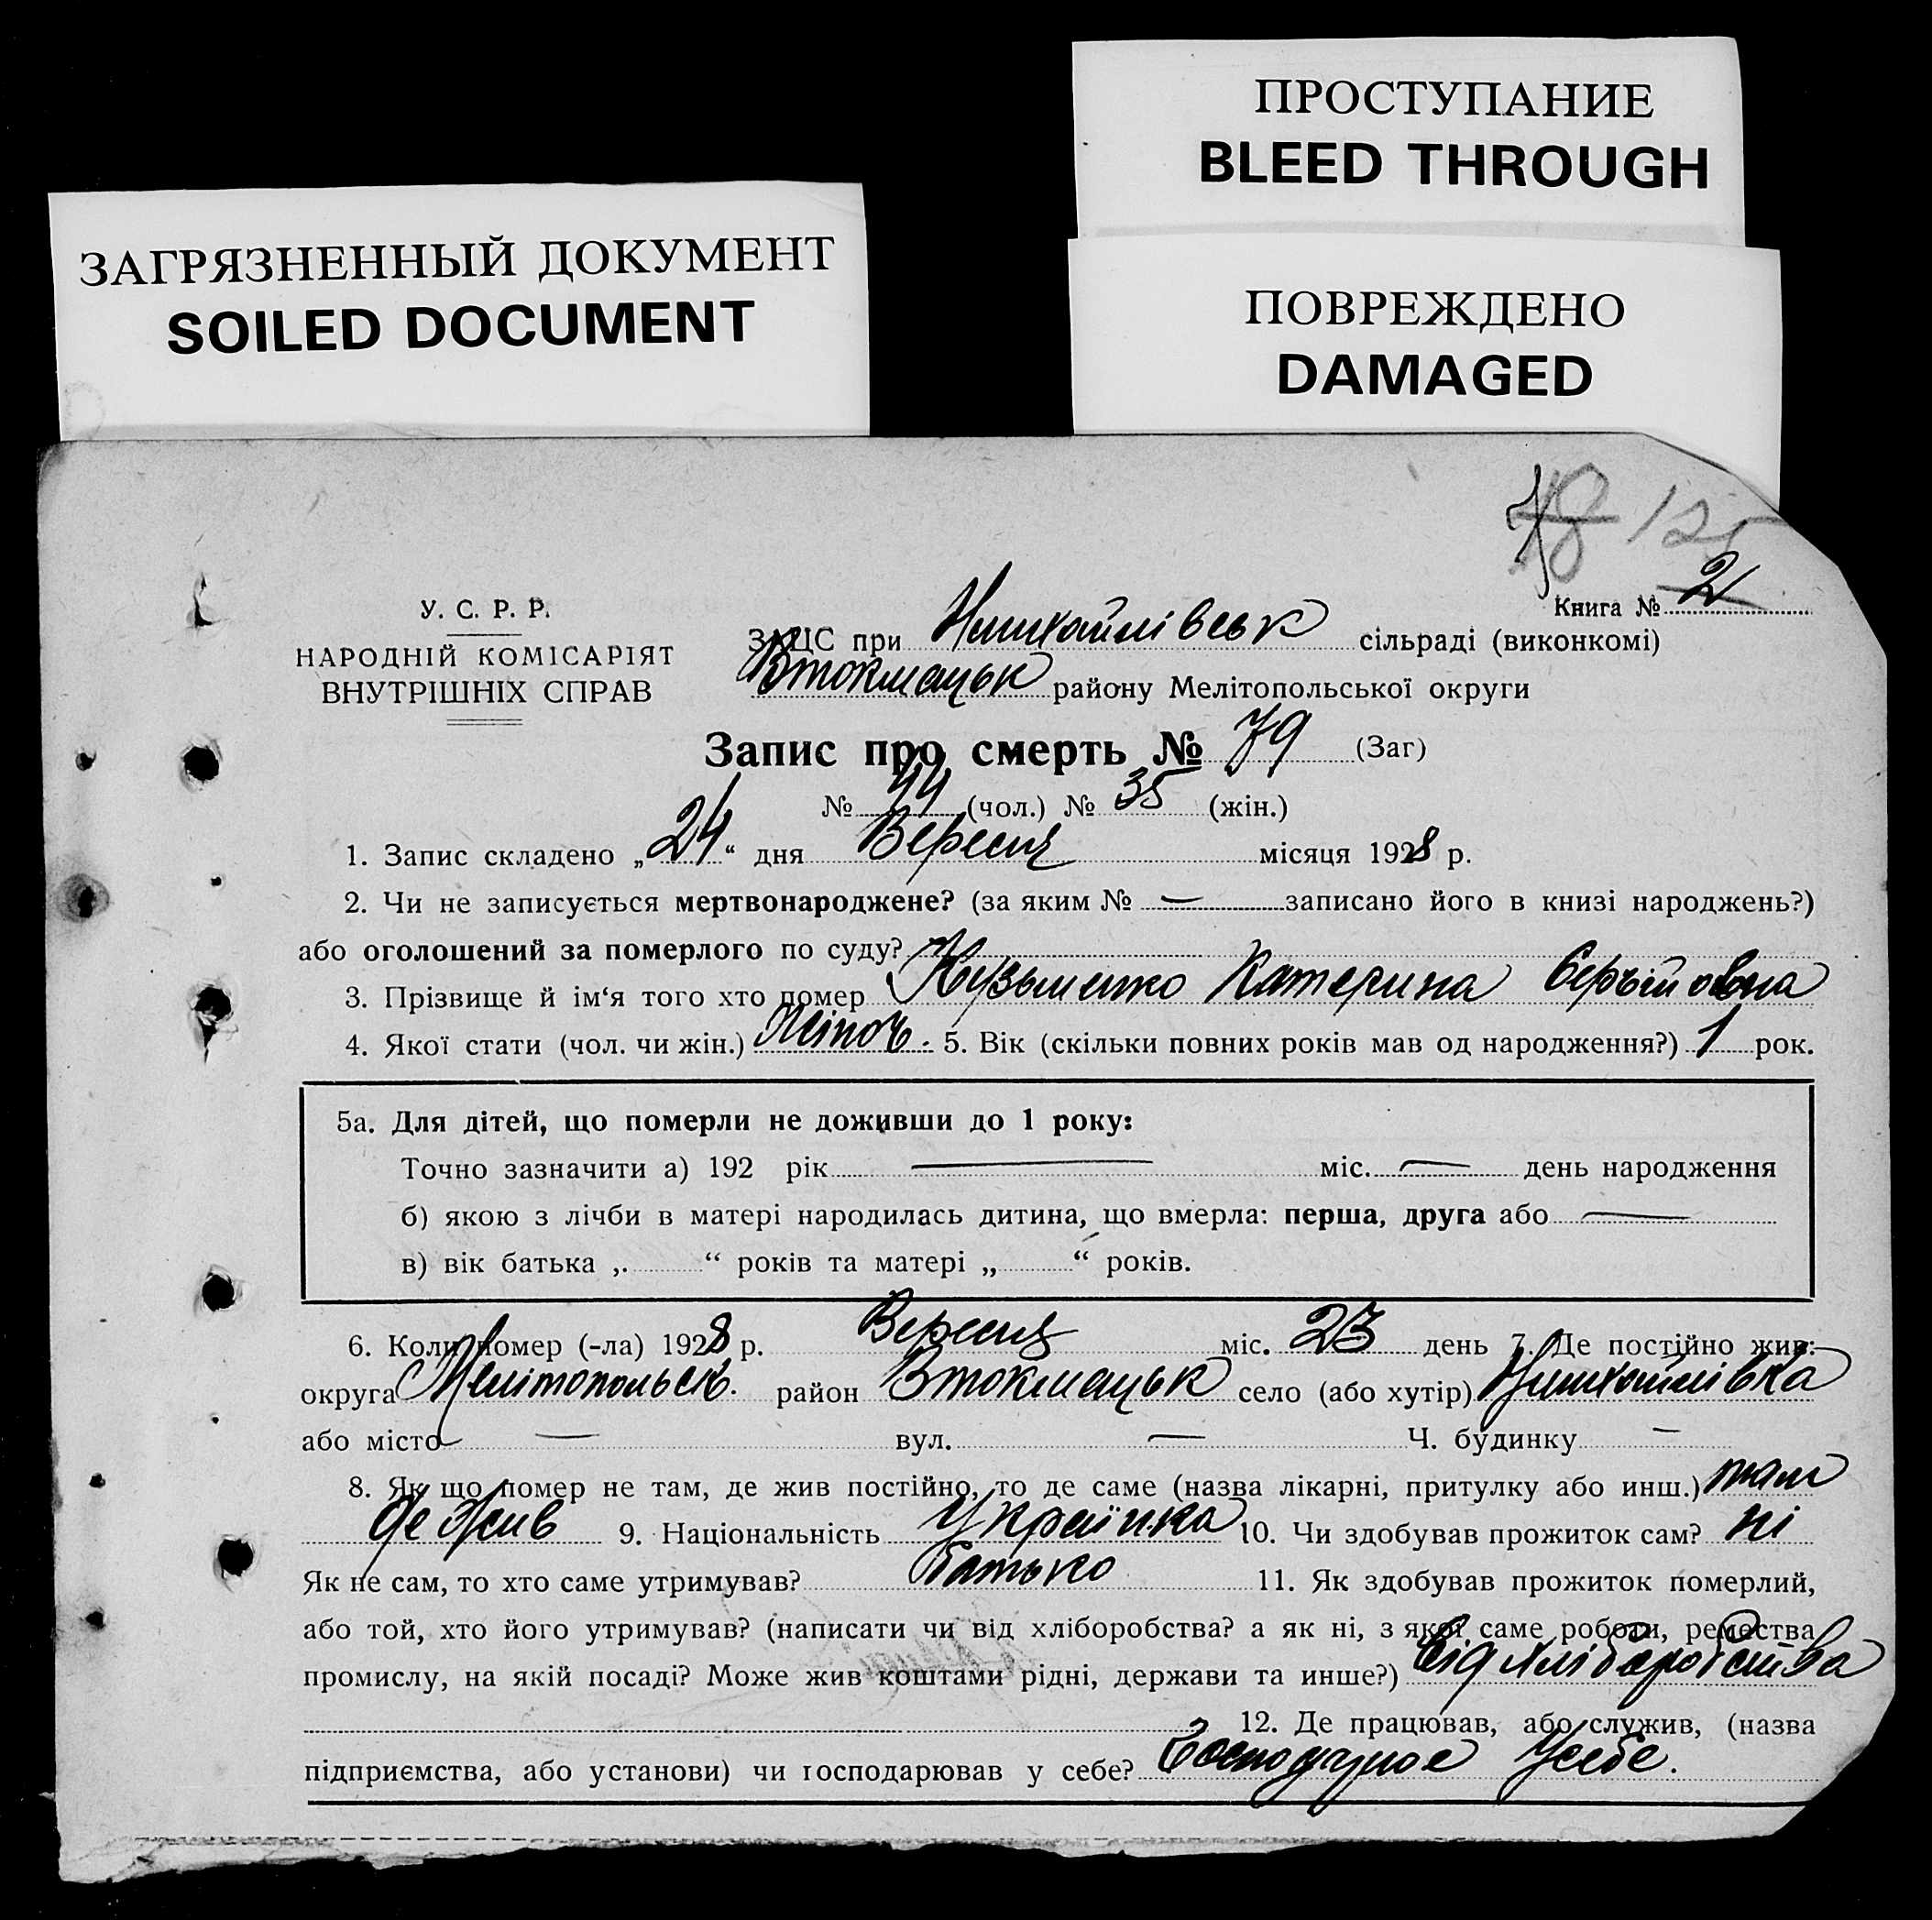 ПРОСТУПАНИЕ
BLEED THROUGH
ЗАГРЯЗНЕННЫЙ ДОКУМЕНТ
SOILED DOCUMENT
ПОВРЕЖДЕНО
DAMAGED
125
Книга № 2
У. С. Р. Р.
НАРОДНІЙ КОМІСАРІЯТ
ВНУТРІШНІХ СПРАВ
ЗАЦС при сільраді (виконкомі)
Втокмацьк району Мелітопольської округи
Запис про смерть № 79 (Заг)
№ 44 (чол.) № 35 (жін.)
1. Запис складено „24“ дня Вересня місяця 1928 р.
2. Чи не записується мертвонароджене? (за яким № — записано його в книзі народжень?)
або оголошений за померлого по суду?
3. Прізвище й ім‘я того хто помер Кузьменко Катерина Сергійовна
4. Якої стати (чол. чи жін.) Жіноч. 5. Вік (скільки повних років мав од народження?) 1 рок.
5а. Для дітей, що померли не доживши до 1 року:
Точно зазначити а) 192 рік — міс. — день народження
б) якою з лічби в матері народилась дитина, що вмерла: перша, друга або —
в) вік батька „ “ років та матері „ “ років.
6. Коли помер (-ла) 1928 р. Вересня міс. 23 день 7. Де постійно жив:
округа Мелітопольськ. район Втокмацьк село (або хутір)
або місто — вул. — Ч. будинку —
8. Як що помер не там, де жив постійно, то де саме (назва лікарні, притулку або инш.) там
де жив 9. Національність Українка 10. Чи здобував прожиток сам? ні
Як не сам, то хто саме утримував? батько 11. Як здобував прожиток померлий,
або той, хто його утримував? (написати чи від хліборобства? а як ні, з якої саме роботи, ремества
промислу, на якій посаді? Може жив коштами рідні, держави та инше?) від хліборобства
12. Де працював, або служив, (назва
підприємства, або установи) чи господарював у себе? Господарює у себе.